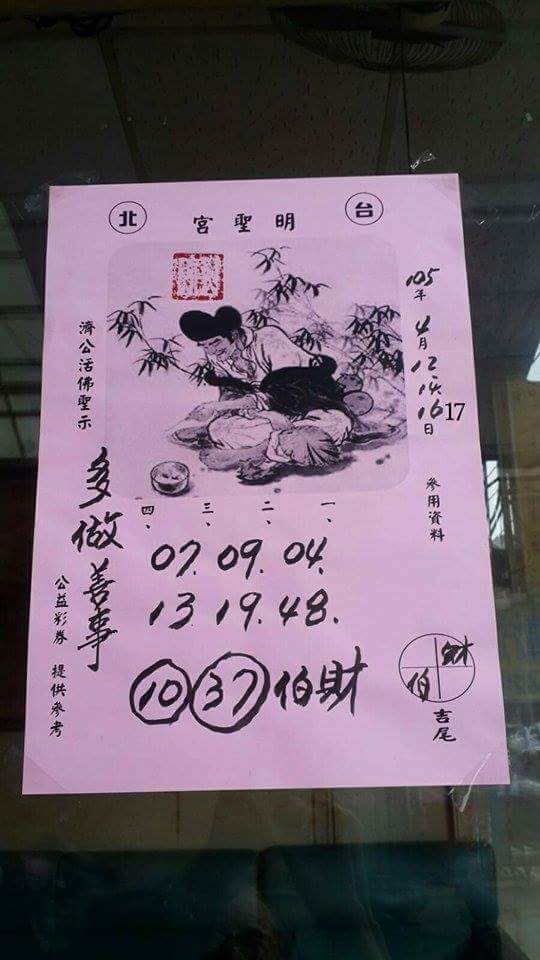 台 明聖宮 北
105年4月12.14.16日17
參用資料
濟公活佛聖示
多做善事
一、 二、 三、 四、
07. 09. 04.
13. 19. 48.
10 37 伯財
財
伯
吉尾
公益彩券 提供參考